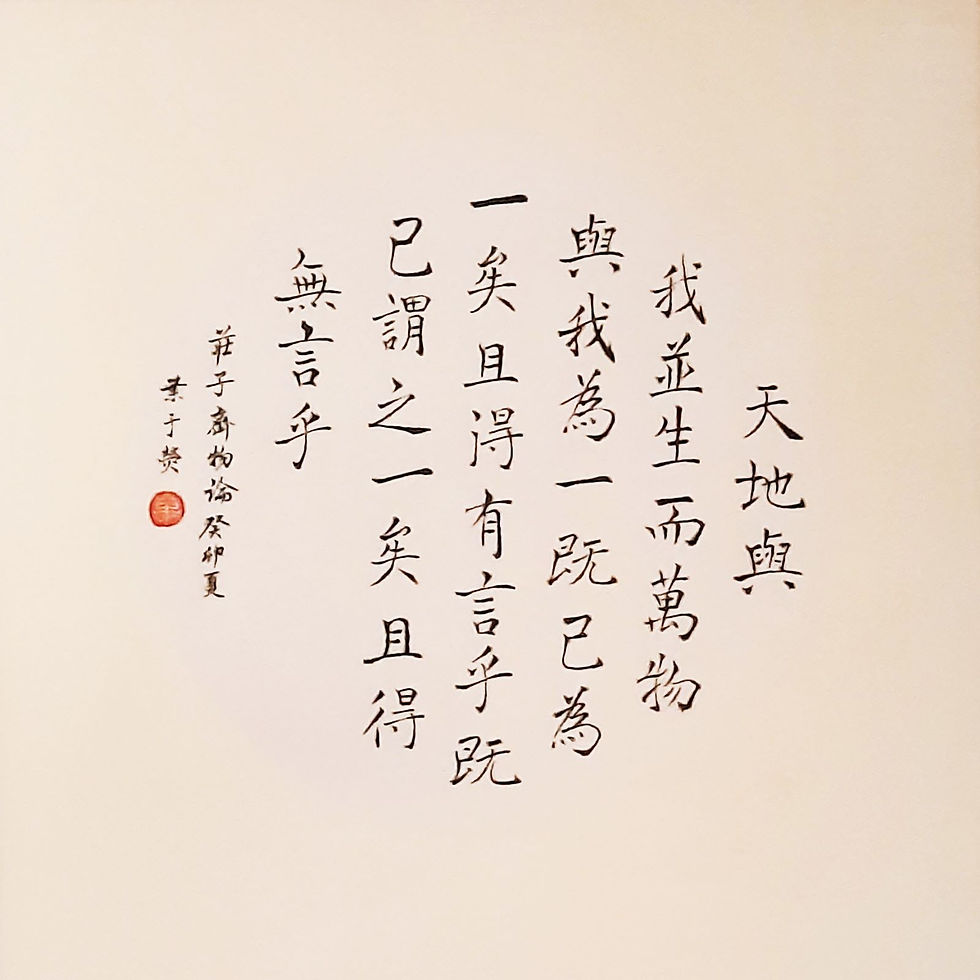 天地與
我並生而萬物
與我為一既已為
一矣且得有言乎既
已謂之一矣且得
無言乎
莊子齊物論癸卯夏
葉于熒